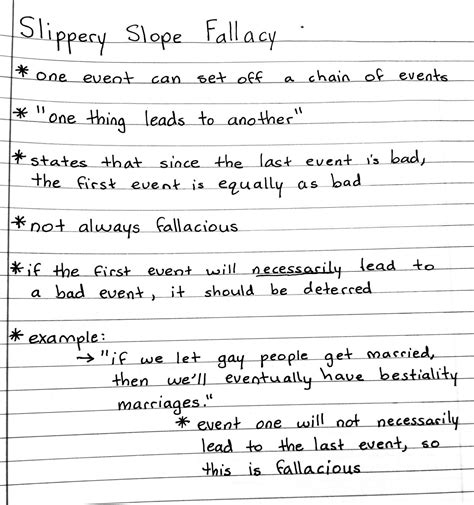 Slippery Slope Fallacy
* one event can set off a chain of events
* "one thing leads to another"
* states that since the last event is bad,
the first event is equally as bad
* not always fallacious
* if the first event will necessarily lead to
a bad event, it should be deterred
* example:
→ "if we let gay people get married,
then we'll eventually have bestiality
marriages."
* event one will not necessarily
lead to the last event, so
this is fallacious